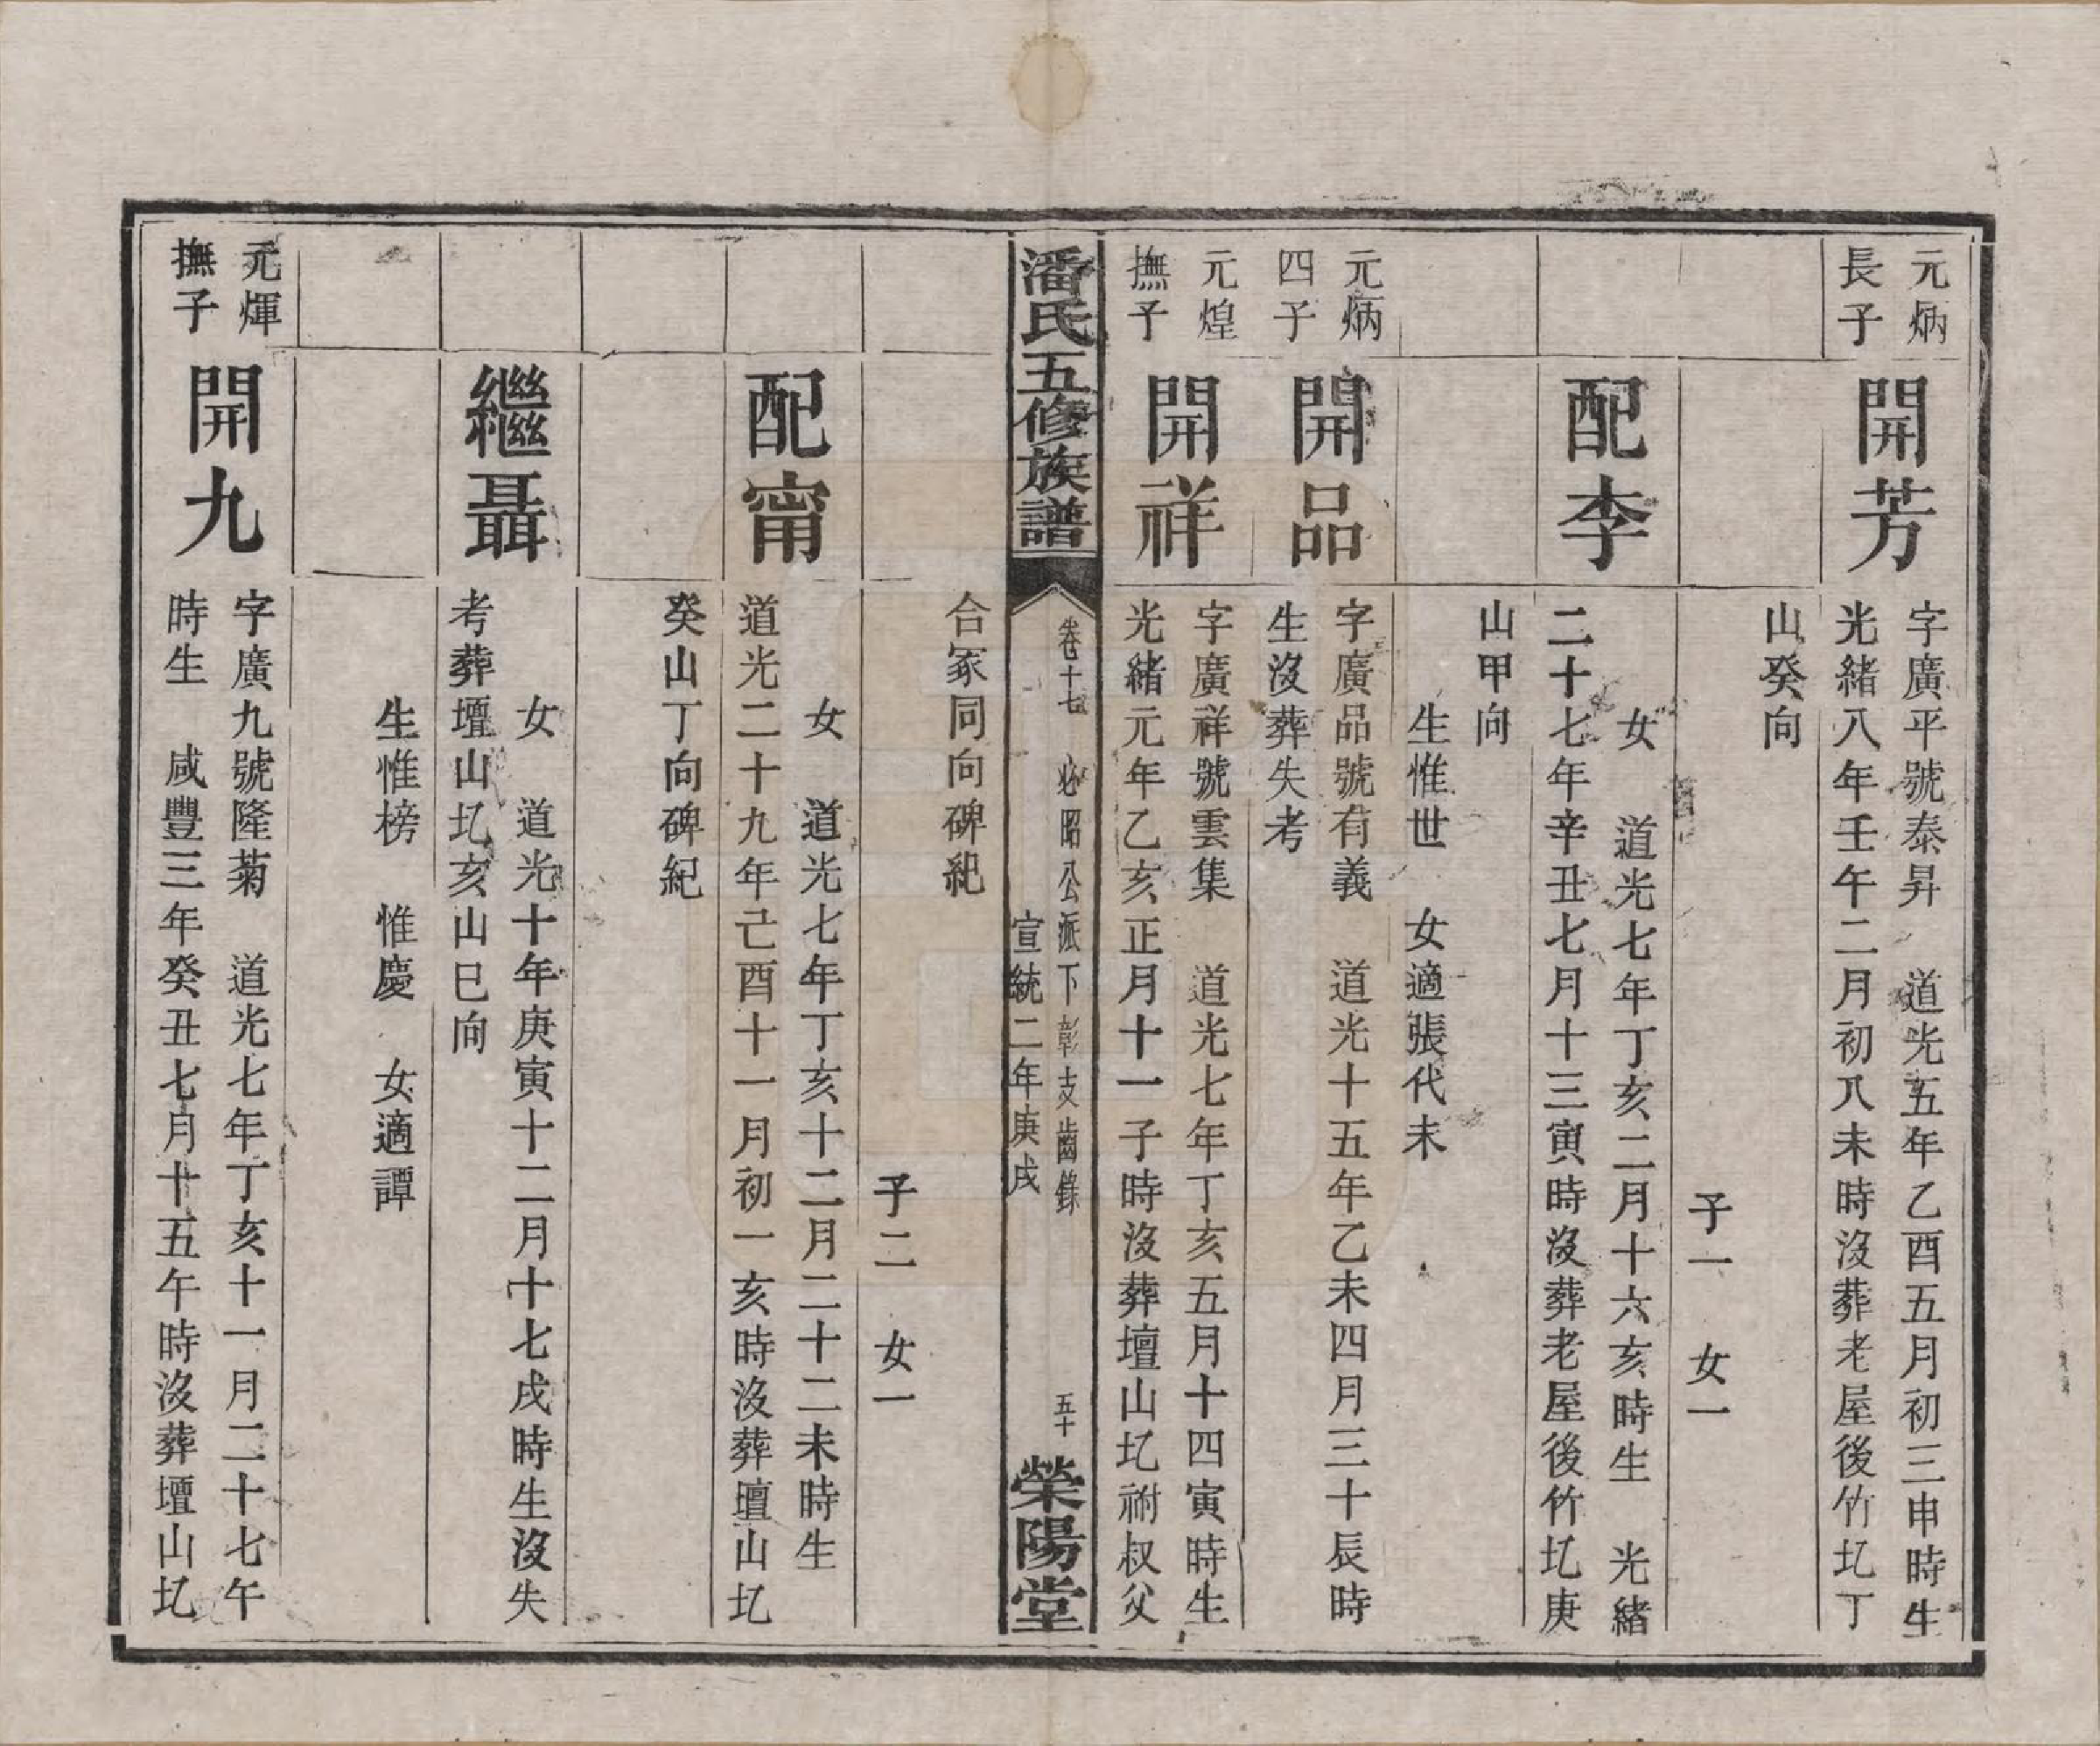 元炳
長子
開芳
字廣平號泰昇　道光五年乙酉五月初三申時生
光緒八年壬午二月初八未時沒葬老屋後竹圠丁
山癸向
子一　女一
配李
女　道光七年丁亥二月十六亥時生　光緒
二十七年辛丑七月十三寅時沒葬老屋後竹圠庚
山甲向
生惟世　女適張代未
元炳
四子
開品
字廣品號有義　道光十五年乙未四月三十辰時
生沒葬失考
元煌
撫子
開祥
字廣祥號雲集　道光七年丁亥五月十四寅時生
光緒元年乙亥正月十一子時沒葬壇山圠祔叔父
潘氏五修族譜
卷十七　必昭公派下彰支齒錄
宣統二年庚戌
五十
榮陽堂
合冢同向碑紀
子二　女一
配甯
女　道光七年丁亥十二月二十二未時生
道光二十九年己酉十一月初一亥時沒葬壇山圠
癸山丁向碑紀
繼聶
女　道光十年庚寅十二月十七戌時生沒失
考葬壇山圠亥山巳向
生惟榜　惟慶　女適譚
元煇
撫子
開九
字廣九號隆菊　道光七年丁亥十一月二十七午
時生　咸豐三年癸丑七月十五午時沒葬壇山圠